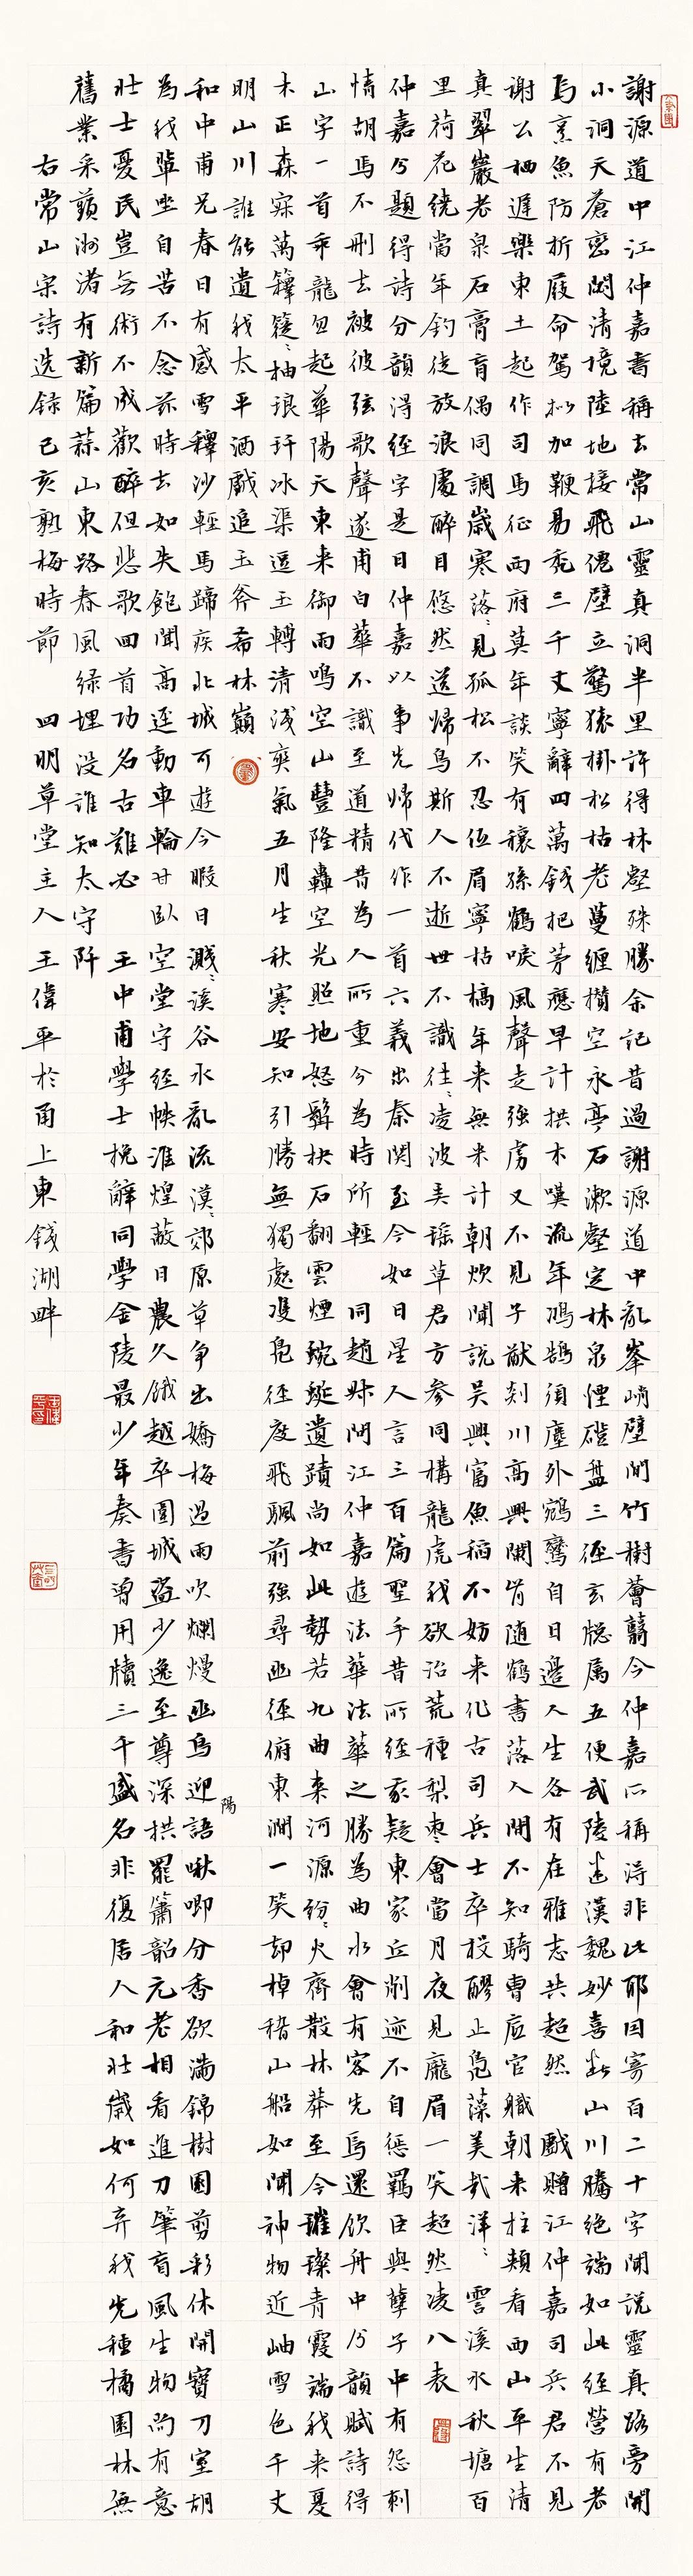 謝源道中江仲嘉書稱去常山靈真洞半里許得林壑殊勝余記昔過謝源道中亂峯峭壁間竹樹薈翳今仲嘉所稱得非此耶因寄百二十字聞說靈真路旁開
小洞天蒼巒閟清境陸地接飛僊壁立驚猿掛松枯老蔓纏攢空永亭石漱壑定林泉煙磴盤三徑玄牕属五便武陵迷漢魏妙喜斷山川騰絕端如此經營有老
烏烹魚防折屐命駕擬加鞭易売三千丈寧辭四萬錢把茅應早計拱木嘆流年鴻鵠須塵外鵷鸞自日邊人生各有在雅志共超然 戲贈江仲嘉司兵君不見
謝公栖遲樂東土起作司馬征西府莫年談笑有穰孫鶴唳風聲走強虜又不見子猷剡川高興闌肯随鶴書落人間不知騎曹底官軄朝来拄頰看西山平生清
真翠巖老泉石膏肓偶同調歲寒落〻見孤松不忍低眉寧枯槁年来無米計朝炊聞說吴興富魚稻不妨来作古司兵士卒投醪止凫藻美哉洋〻霅溪水秋塘百
里荷花繞當年釣徒放浪處醉目悠然送帰鳥斯人不逝世不識往〻凌波弄瑶草君方參同構龍虎我欲治荒種梨棗會當月夜見龐眉一笑超然凌八表
仲嘉分題得詩分韻得經字是日仲嘉以事先帰代作一首六義出秦関至今如日星人言三百篇聖手昔所經豪疑東家丘削迹不自惩羁臣與孽子中有怨刺
情胡馬不刪去被彼弦歌聲遂甫白華不識至道精昔為人所重今為時所輕 同趙叔問江仲嘉遊法華法華之勝為曲水會有客先焉還飲舟中分韻賦詩得
山字一首乖龍忽起華陽天東来御雨鳴空山豐隆轟空光照地怒鬐抉石翻雲煙蜿蜒遺蹟尚如此勢若九曲来河源紛〻火齊散林莽至今璀璨青霞端我来夏
木正森寀萬籜筳〻抽琅玕冰渠逗玉轉清淺爽氣五月生秋寒安知引勝無獨處雙凫徑度飛颿前強尋幽徑俯東澗一笑却棹稽山船如聞神物近岫雪色千丈
明山川誰能遺我太平酒戲追玉斧希林巔
陽
和中甫兄春日有感雪釋沙輕馬蹄疾北城可遊今暇日濺〻溪谷水亂流漠〻郊原草争出嬌梅過雨吹爛熳幽鳥迎語啾唧分香欲滿錦樹園剪彩休開寶刀室胡
為我輩坐自苦不念茲時去如失飽聞高逕動車輪甘臥空堂守經帙淮煌蔽日農久餓越卒圍城盜少逸至尊深拱罷簫韶元老相看進刀筆肓風生物尚有意
壯士憂民豈無術不成歡醉但悲歌回首功名古難必 王中甫學士挽辭同學金陵最少年奏書曾用牘三千盛名非復居人和壯歲如何弃我先種橘園林無
舊業采蘋洲渚有新篇蒜山東路春風緑埋沒誰知太守阡
右常山宋詩選錄己亥熟梅時節 四明草堂主人王偉平於甬上東錢湖畔